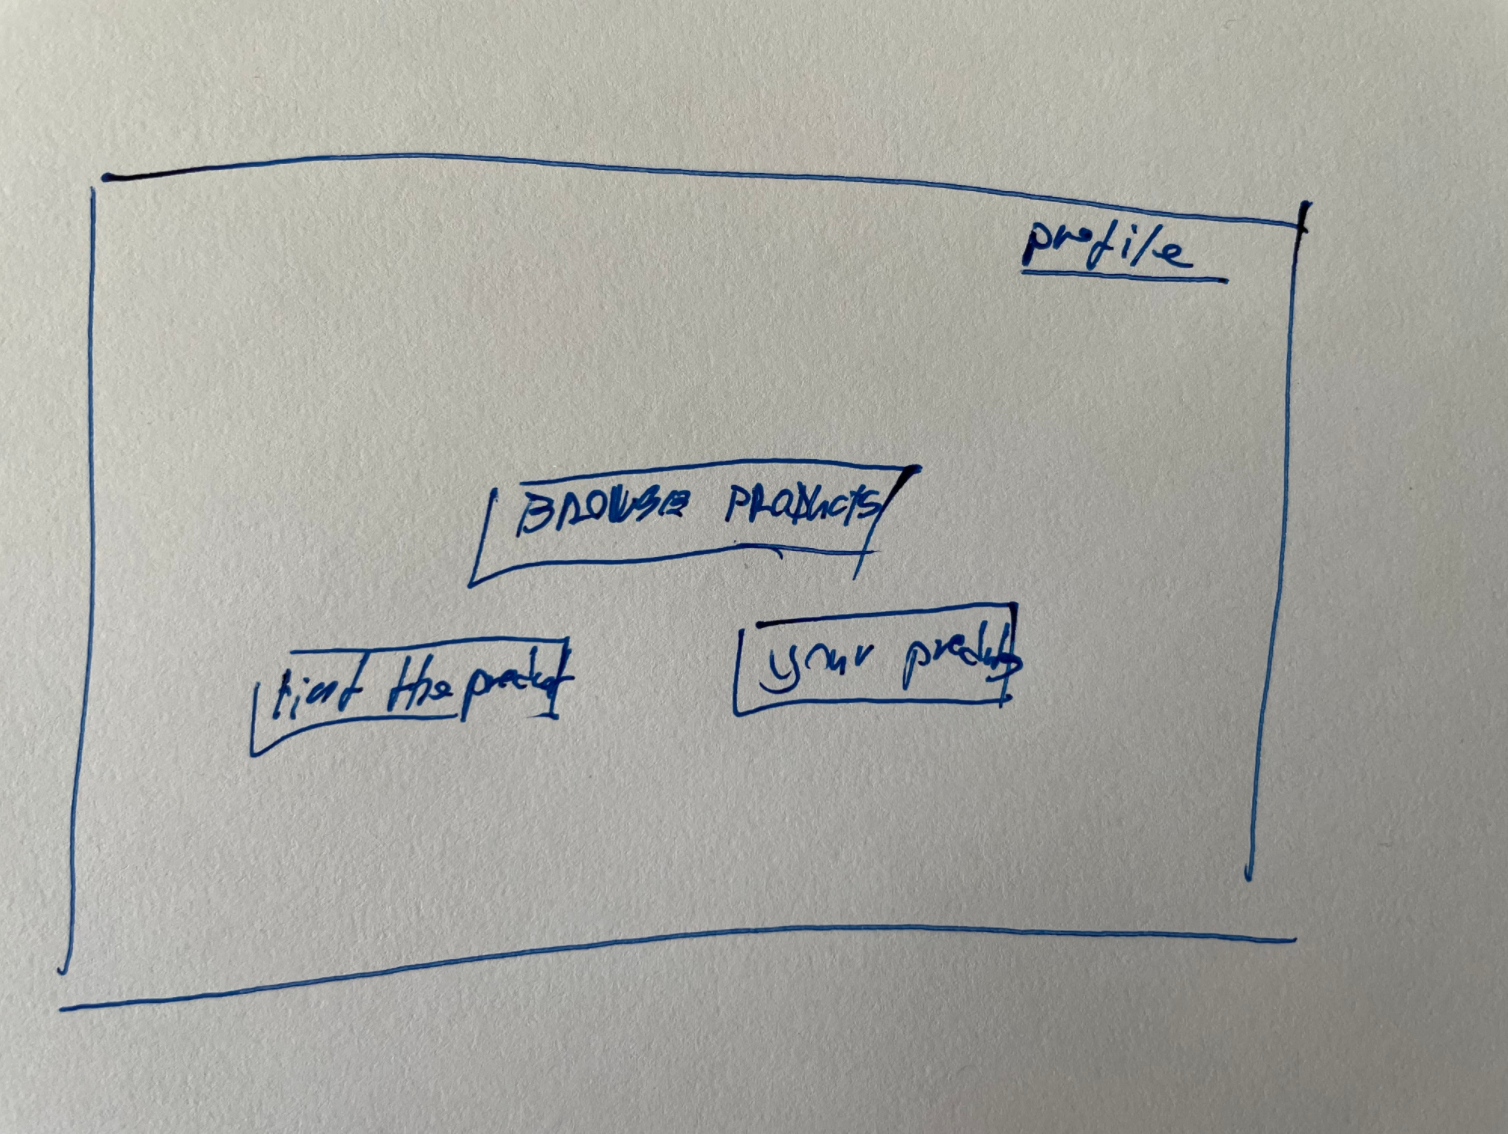 profile
BROWSE PRODUCTS
Find the product
your products